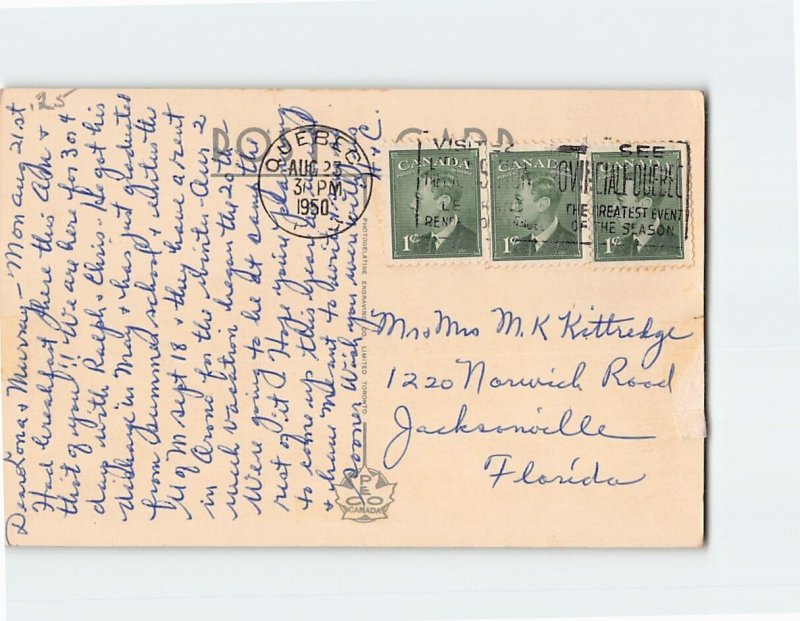 .25
POST CARD
Dear Lona & Murray — Mon Aug 21st
Had breakfast here this AM &
thot of you!! We are here for 3 or 4
days with Ralph & Chris. He got his
in May & has just graduated
from summer school & enters the
U of M Sept 18 & they have a rent
in Orono for the winter. Aug 2
much vacation began the 20th
Were going to be at camp the
rest of it I Hope your planning
to come up this year
& have meant to write
sooner. Wish you were with us
& C.
QUEBEC
AUG 23
3 PM
1950
VISIT
SEE
PROVINCIAL QUEBEC
THE GREATEST EVENT
OF THE SEASON
CANADA
1¢
CANADA
1¢
CANADA
1¢
PHOTOGELATINE ENGRAVING CO. LIMITED, TORONTO
PECO
CANADA
Mr & Mrs M. K Kittredge
1220 Norwich Road
Jacksonville
Florida